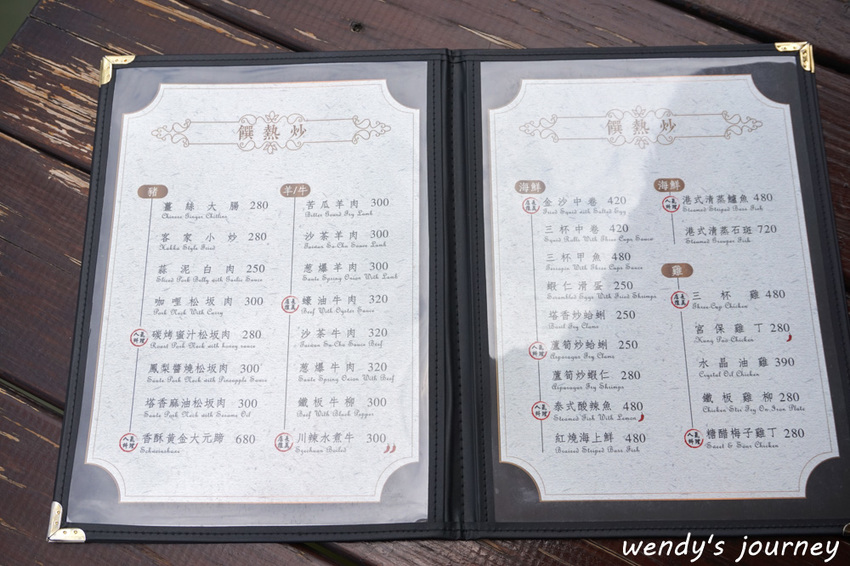 饌熱炒
豬
薑絲大腸 280
Chinese Ginger Chitlins
客家小炒 280
Hakka Style Fried
蒜泥白肉 250
Sliced Pork Belly with Garlic Sauce
咖哩松坂肉 300
Pork Neck With Curry
人氣料理 碳烤蜜汁松坂肉 280
Roast Pork Neck with honey sauce
鳳梨醬燒松坂肉 300
Saute Pork Neck with Pineapple Sauce
塔香麻油松坂肉 300
Saute Pork Neck with Sesame Oil
人氣料理 香酥黃金大元蹄 680
Schweinshaxe
羊/牛
苦瓜羊肉 300
Bitter Gourd Fry Lamb
沙茶羊肉 300
Taiwan Sa Cha Sauce Lamb
蔥爆羊肉 300
Saute Spring Onion With Lamb
蠔油牛肉 320
Beef With Oyster Sauce
沙茶牛肉 320
Taiwan Sa Cha Sauce Beef
蔥爆牛肉 320
Saute Spring Onion With Beef
鐵板牛柳 300
Beef With Black Pepper
川辣水煮牛 300
Szechuan Boiled
饌熱炒
海鮮
金沙中卷 420
Fried Squid with Salted Egg
三杯中卷 420
Squid Rolls With Three Cups Sauce
三杯甲魚 480
Terrapin With Three Cups Sauce
蝦仁滑蛋 250
Scrambled Eggs With Fried Shrimps
塔香炒蛤蜊 250
Basil Fry Clams
人氣料理 蘆筍炒蛤蜊 250
Asparagus Fry Clams
蘆筍炒蝦仁 280
Asparagus Fry Shrimps
人氣料理 泰式酸辣魚 480
Steamed Fish With Lemon
紅燒海上鮮 480
Braised Striped Bass Fish
海鮮
人氣料理 港式清蒸鱸魚 480
Steamed Striped Bass Fish
港式清蒸石斑 720
Steamed Grouper Fish
雞
三杯雞 480
Three Cup Chicken
宮保雞丁 280
Kung Pao Chicken
水晶油雞 390
Crystal Oil Chicken
鐵板雞柳 280
Chicken Stir Fry On Iron Plate
人氣料理 糖醋梅子雞丁 280
Sweet & Sour Chicken
wendy's journey